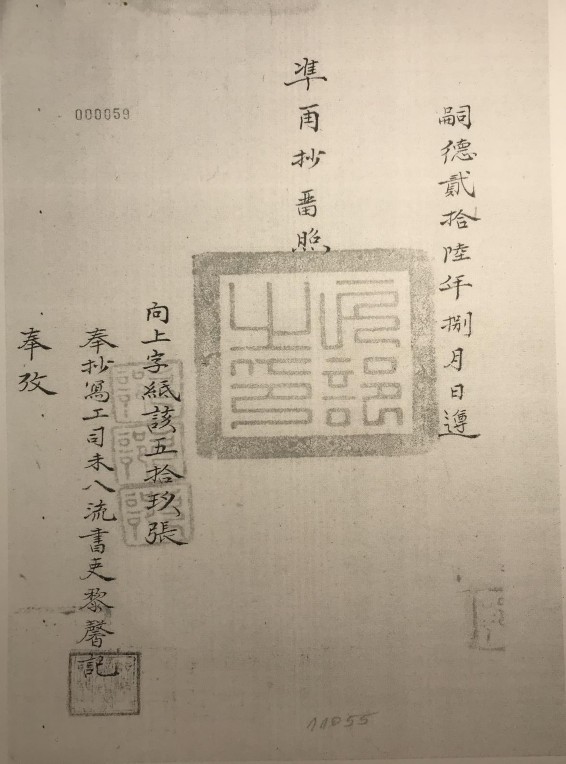 嗣德貳拾陸年捌月日遵
準再抄畱照
向上字紙該五拾玖張
奉抄寫工司未入流書吏黎馨記
奉攷
000059
11055